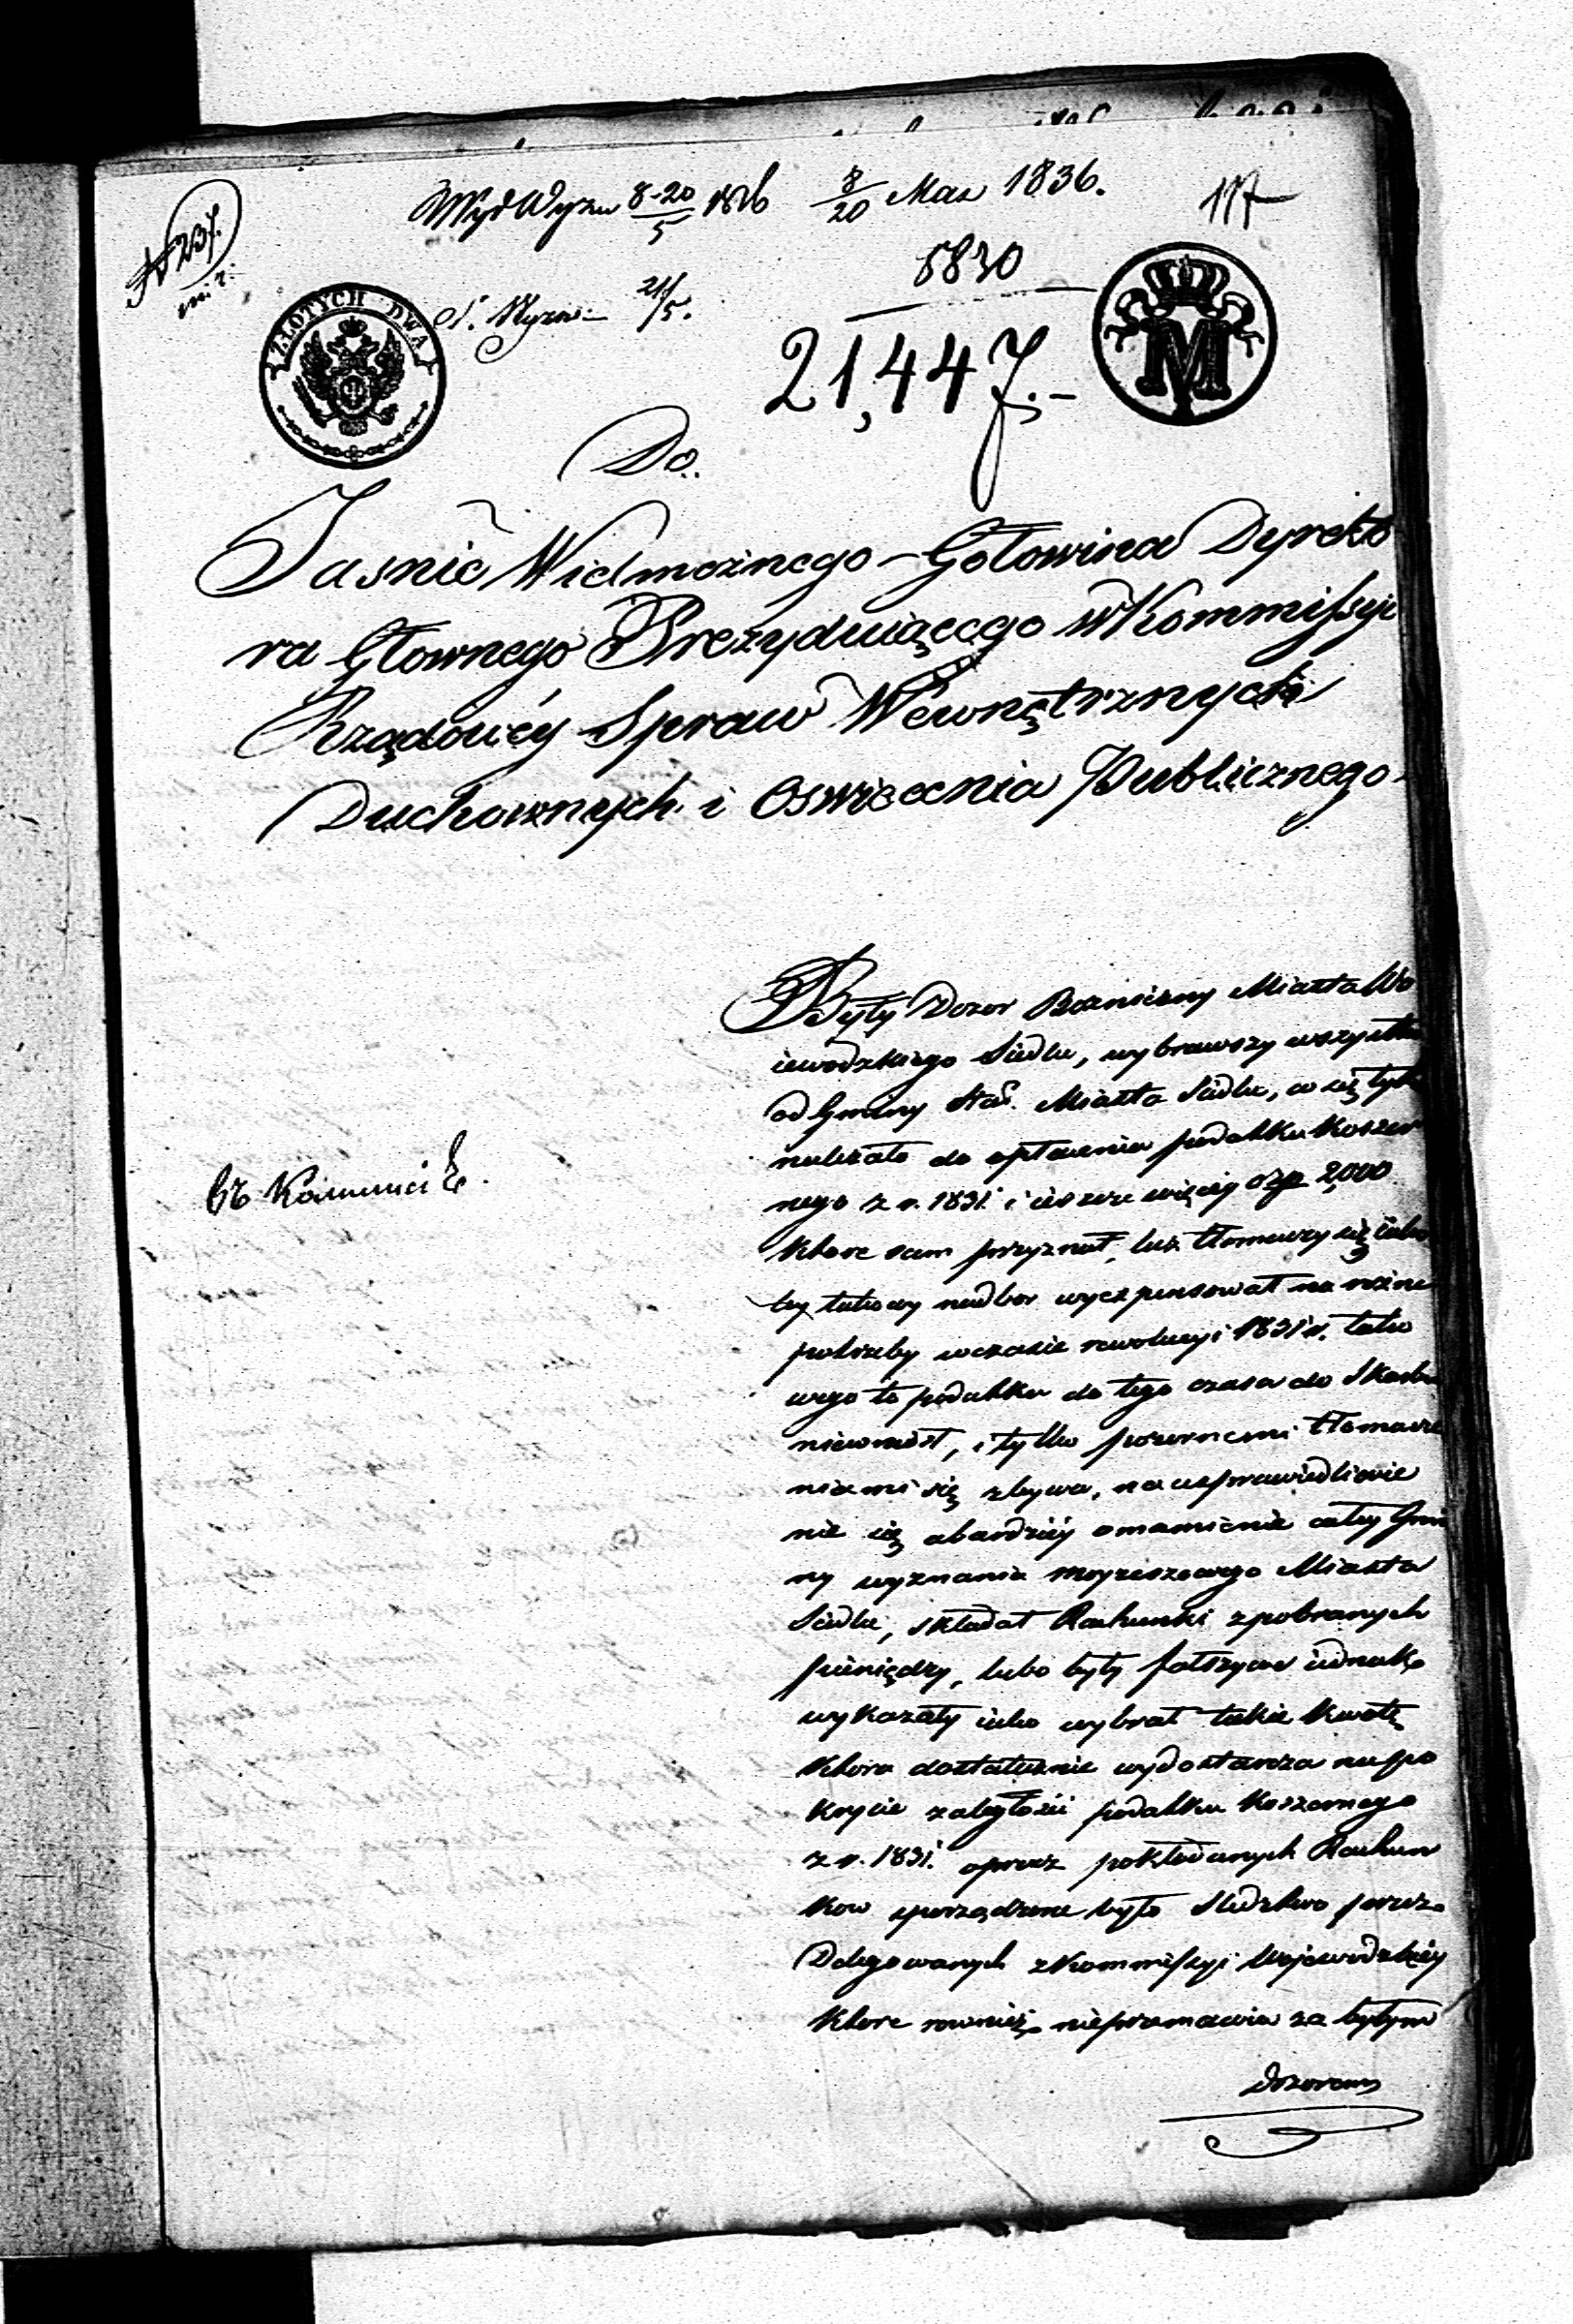 Wyd Wyzn 8-20/5 1836
8/20 Maa 1836.
117
N 237.
5830
ZŁOTYCH DWA
S. Wyzn: 21/5.
21,447.-
M
Do.
Jasnie Wielmożnego Gołowina Dyrekto
ra Głownego Prezyduiącego w Kommissyi
Rządowéy Spraw Wewnętrznych
Duchownych i Oswiecenia Publicznego.
Były Dozor Bozniczny Miasta Wo
iewodzkiego Siedlec, wybrawszy wszystko
od Gminy Star. Miasta Siedlec, co się tylko
należało do opłacenia podatku Koszer
nego z r. 1831. i ieszcze więcey o zp 2,000
Ktore sam przyznał, lecz tłomaczy się iako
by takowy nadbor wyexpensował na rożne
potrzeby w czasie rewolucyi 1831 r. tako
wego to podatku do tego czasu do Skarbu
niewniosł, i tylko pozornemi tłomacze
niami się zbywa, na usprawiedliwie
nie się a bardziéy omamienie całey Gmi
ny wyznania moyżeszowego Miasta
Siedlec, składał Rachunki z pobranych
pieniędzy, lubo były fałszywe iednakże
wykazały iako wybrał takie kwotę
Ktora dostatecznie wydostarcza na po
krycie zaległości podatku Koszernego
z r. 1831. oprocz pokładanych Rachun
kow sporządzone było Sledztwo przez
Delegowanych z Kommissyi Wojewodzkiéy
Ktore rownież nieprzemawia za byłym
Dozorem